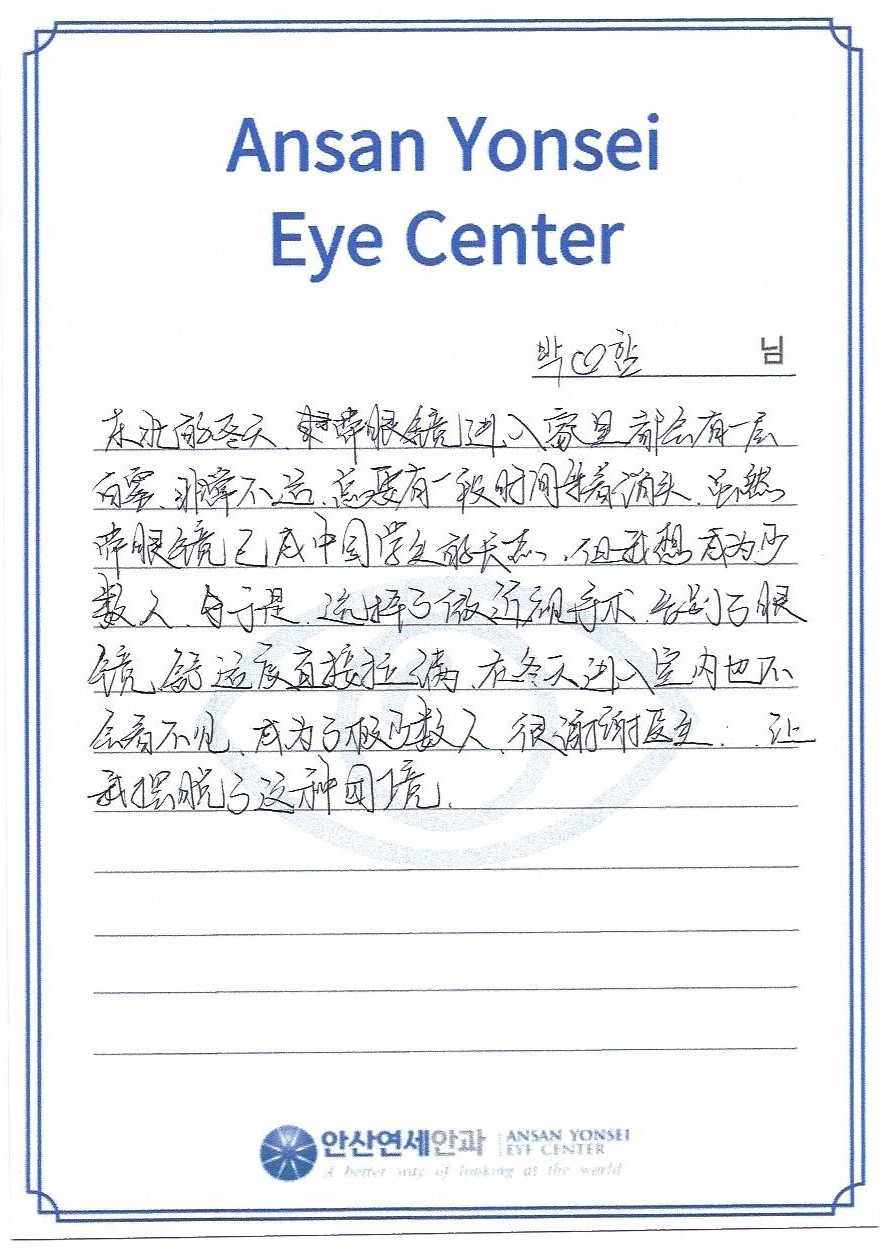 Ansan Yonsei
Eye Center
박♡함 님
东北的冬天 带眼镜进入家里都会有一层
白雾、非常不适、总要有一段时间等着消失、虽然
带眼镜已成中国学生的常态、但我想成为少
数人、于是、选择了做近视手术、告别了眼
镜、舒适度直接拉满、在冬天进入室内也不
会看不见、成为了极少数人、很谢谢医生、让
我摆脱了这种困境、
안산연세안과 ANSAN YONSEI
EYE CENTER
A better way of looking at the world